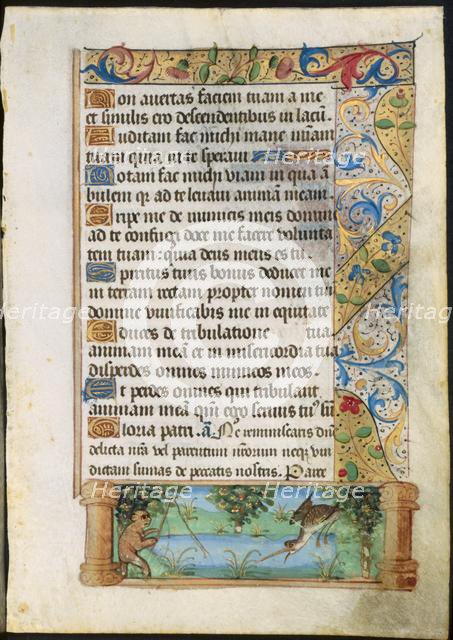 Non auertas faciem tuam a me
et similis ero descendentibus in lacu.
Auditam fac michi mane miam
tuam quia in te speraui
Notam fac michi viam in qua am
bulem qr ad te leuaui animam meam.
Eripe me de inimicis meis domine
ad te confugi doce me facere volunta
tem tuam: quia deus meus es tu.
Spiritus tuus bonus deducet me
in terram rectam propter nomen tuum
domine viuificabis me in equitate
Educes de tribulatione tuā
animam meā et in misericordia tua
disperdes omnes inimicos meos.
Et perdes omnes qui tribulant
animam meā qm ego seruus tuus sum
Gloria patri. A. Ne reminiscaris dn̄e
delicta nrā vel parentum nrorum neqꝫ vin
dictam sumas de peccatis nostris. Pater
Heritage